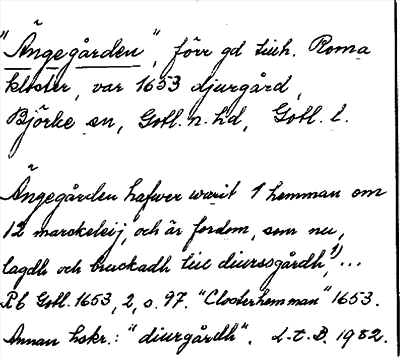 "Ängegården", förr gd tillh. Roma
kloster, var 1653 djurgård,
Björke sn, Gotl. n. hd, Gotl. l.
Ängegården hafwer warit 1 hemman om
12 marckeleij, och är fordom, som nu,
lagdh och bruckadh till diurssgårdh,¹)...
Rb Gotl. 1653, 2, s. 97. "Closterhemman" 1653.
Annan hskr.: "diurgårdh". L-t. B. 1952.